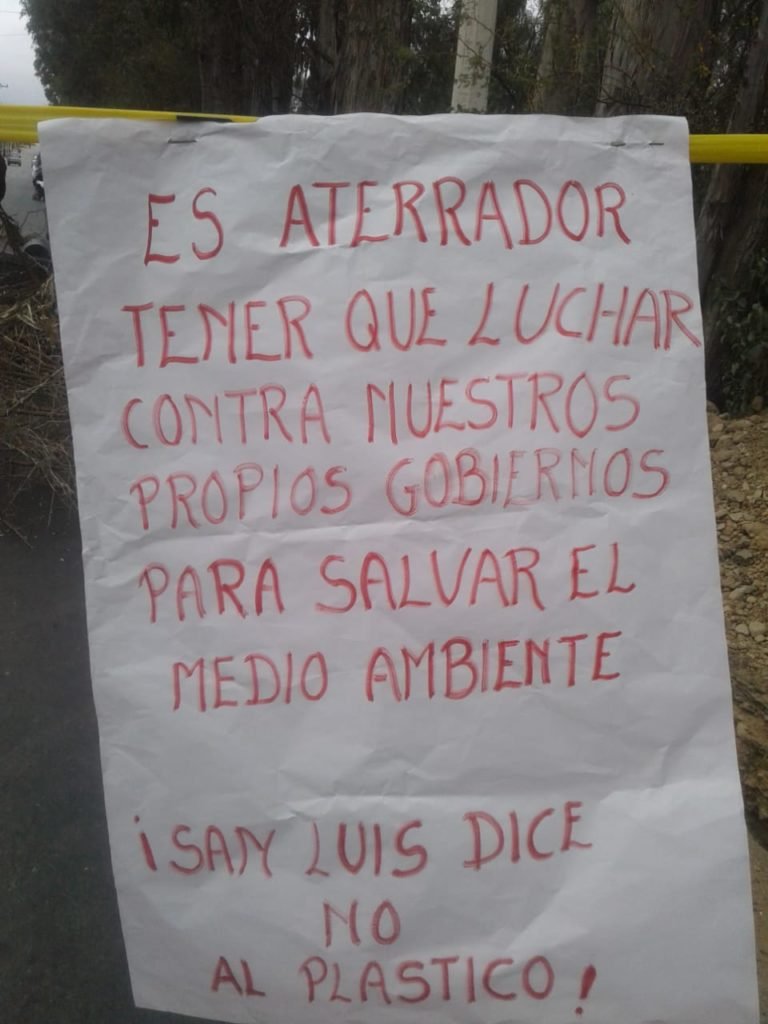 ES ATERRADOR
TENER QUE LUCHAR
CONTRA NUESTROS
PROPIOS GOBIERNOS
PARA SALVAR EL
MEDIO AMBIENTE
¡SAN LUIS DICE
NO
AL PLASTICO!